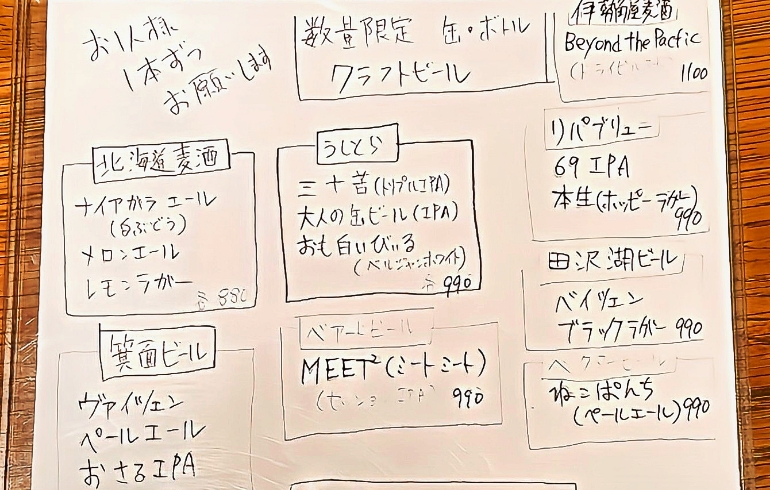 お1人様
1本ずつ
お願いします
数量限定 缶・ボトル
クラフトビール
伊勢角屋麦酒
Beyond the Pacfic
1100
北海道麦酒
ナイアガラ エール
(白ぶどう)
メロンエール
レモンラガー
各 880
うしとら
三十苦(トリプルIPA)
大人の缶ビール(IPA)
おも白いびぃる
(ベルジャンホワイト)
各 990
リパブリュー
69 IPA
本生(ホッピーラガー)
990
田沢湖ビール
ベイツェン
ブラックラガー 990
箕面ビール
ヴァイツェン
ペールエール
おさるIPA
ベアードビール
MEET²(ミートミート)
(セッションIPA) 990
ねこぱんち
(ペールエール)990